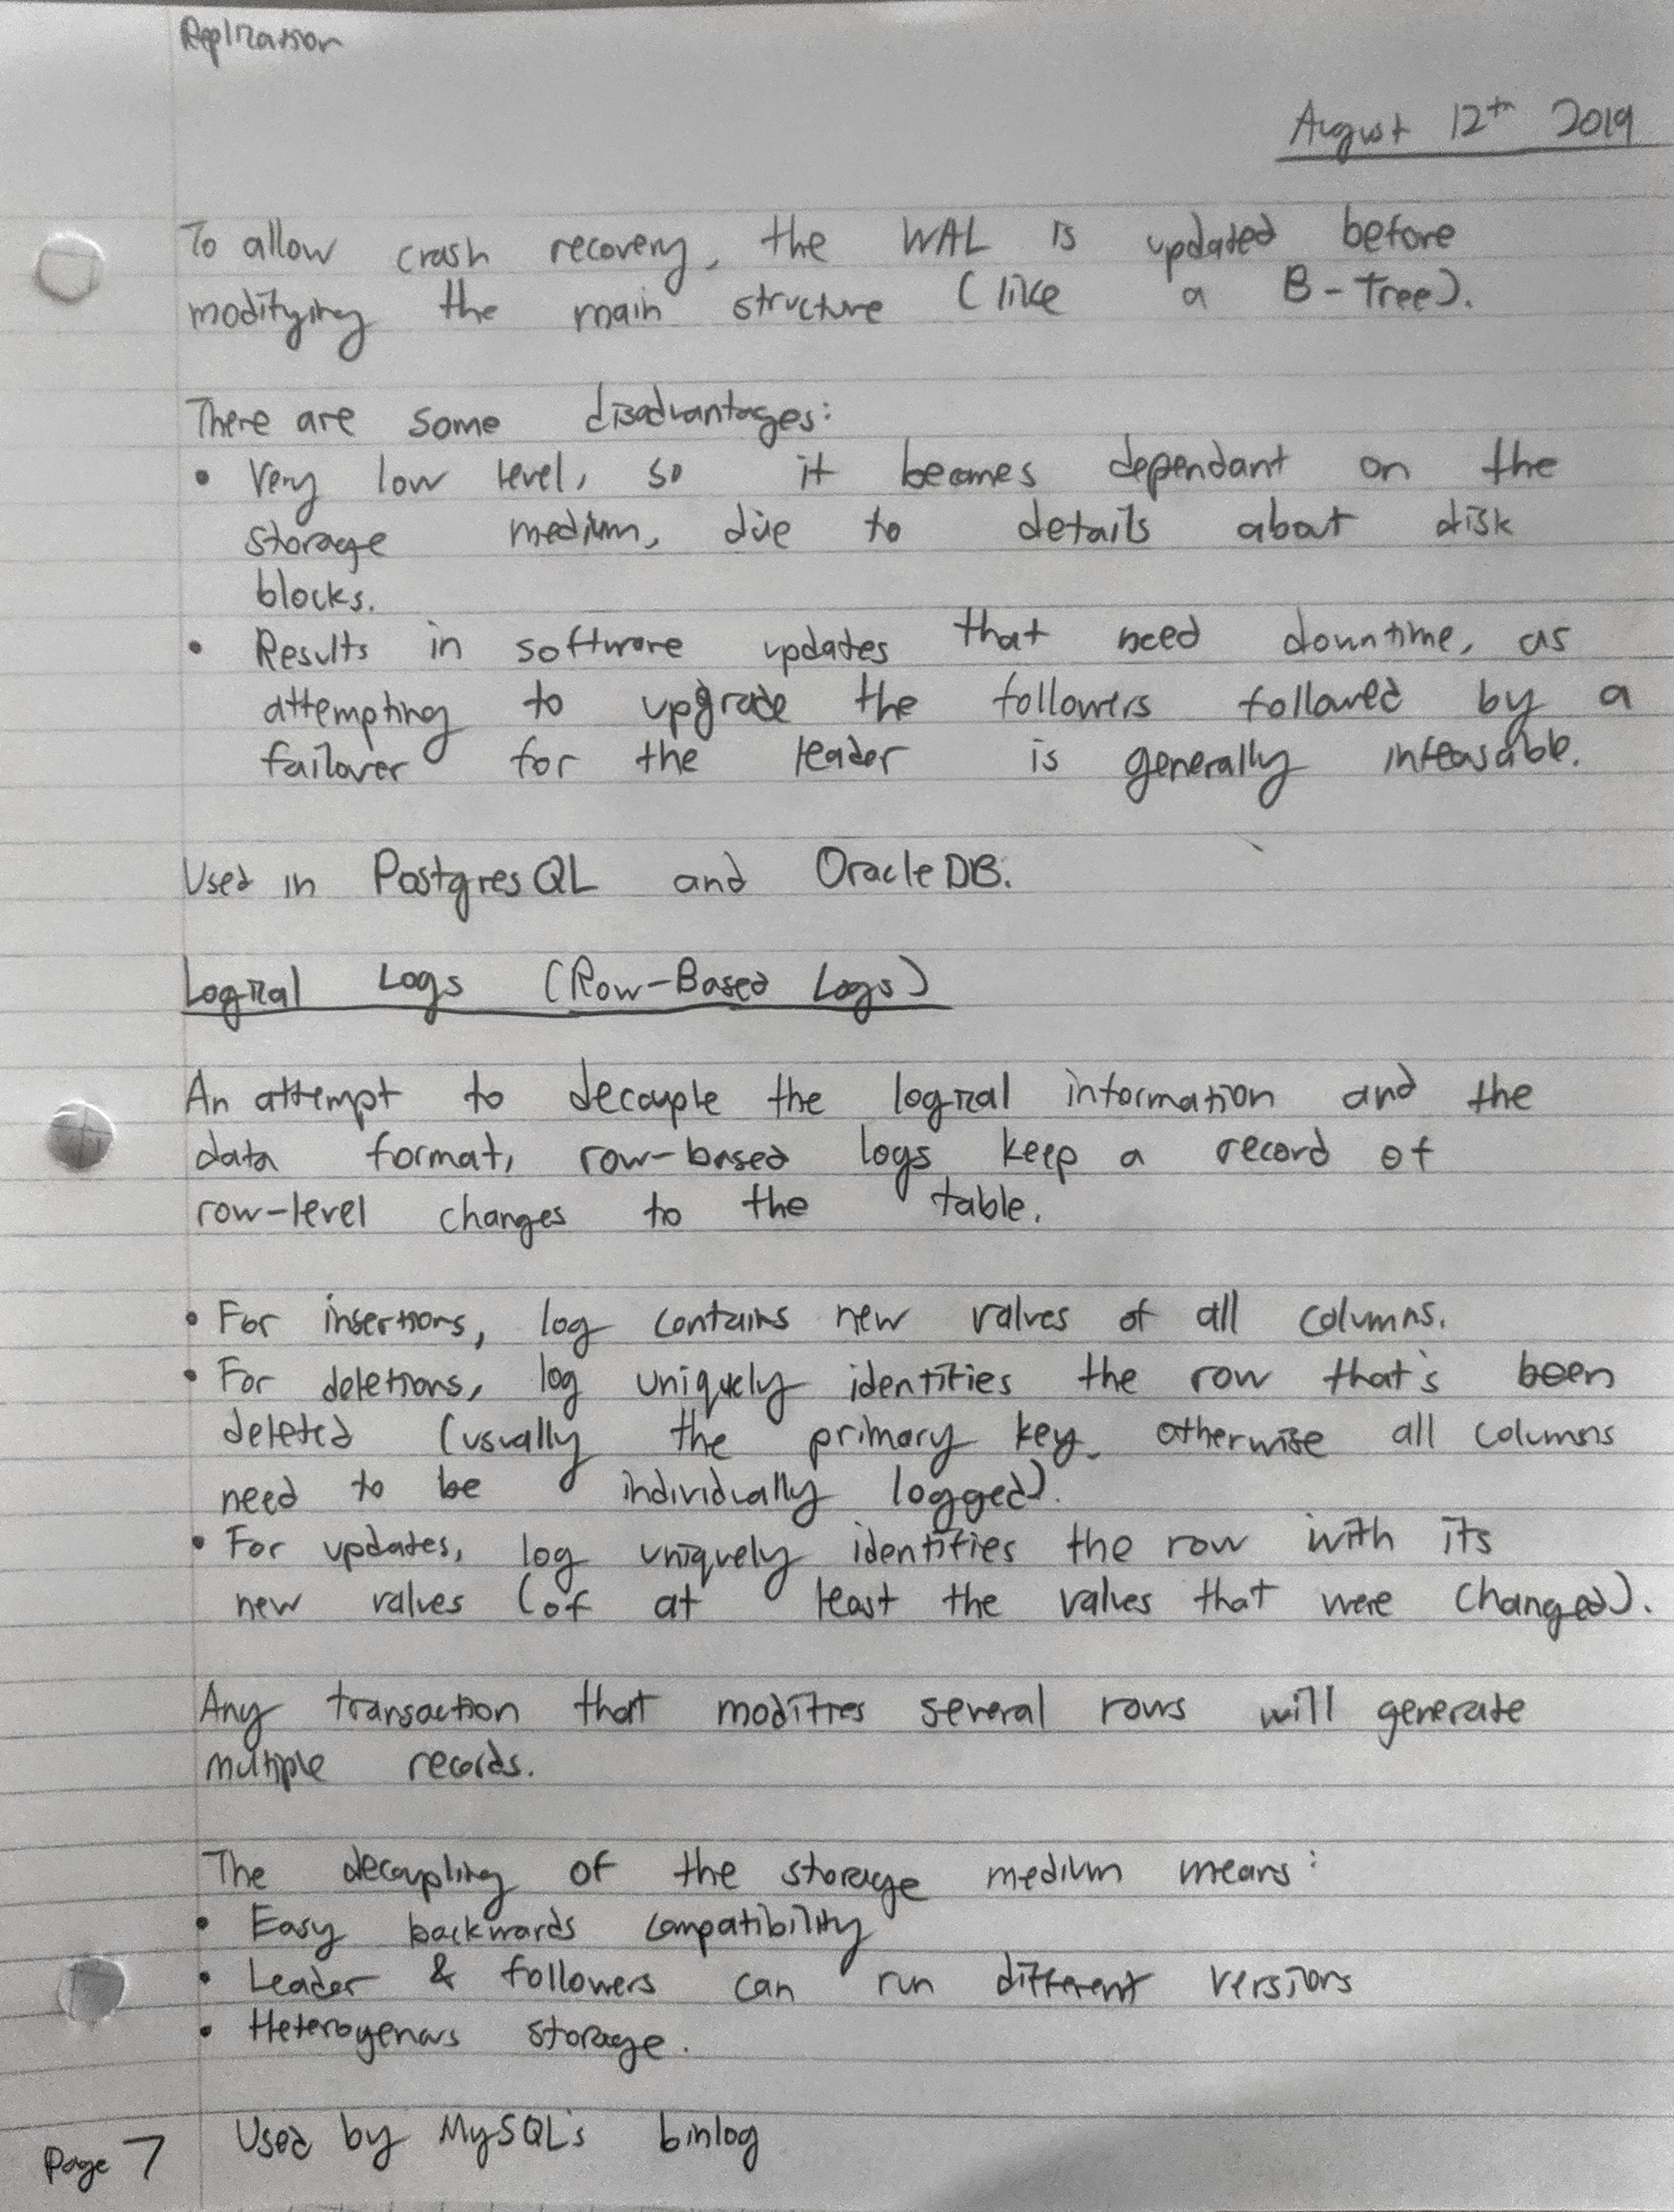 Replication
August 12th 2019
To allow crash recovery, the WAL is updated before
modifying the main structure (like a B-Tree).
There are some disadvantages:
• Very low level, so it becomes dependant on the
storage medium, due to details about disk
blocks.
• Results in software updates that need downtime, as
attempting to upgrade the followers followed by a
failover for the leader is generally infeasable.
Used in PostgresQL and OracleDB.
Logical Logs (Row-Based Logs)
An attempt to decouple the logical information and the
data format, row-based logs keep a record of
row-level changes to the table.
• For insertions, log contains new values of all columns.
• For deletions, log uniquely identifies the row that's been
deleted (usually the primary key, otherwise all columns
need to be individually logged).
• For updates, log uniquely identifies the row with its
new values (of at least the values that were changed).
Any transaction that modifies several rows will generate
multiple records.
The decoupling of the storage medium means:
• Easy backwards compatibility
• Leader & followers can run different versions
• Heterogenous storage.
Used by MySQL's binlog
Page 7